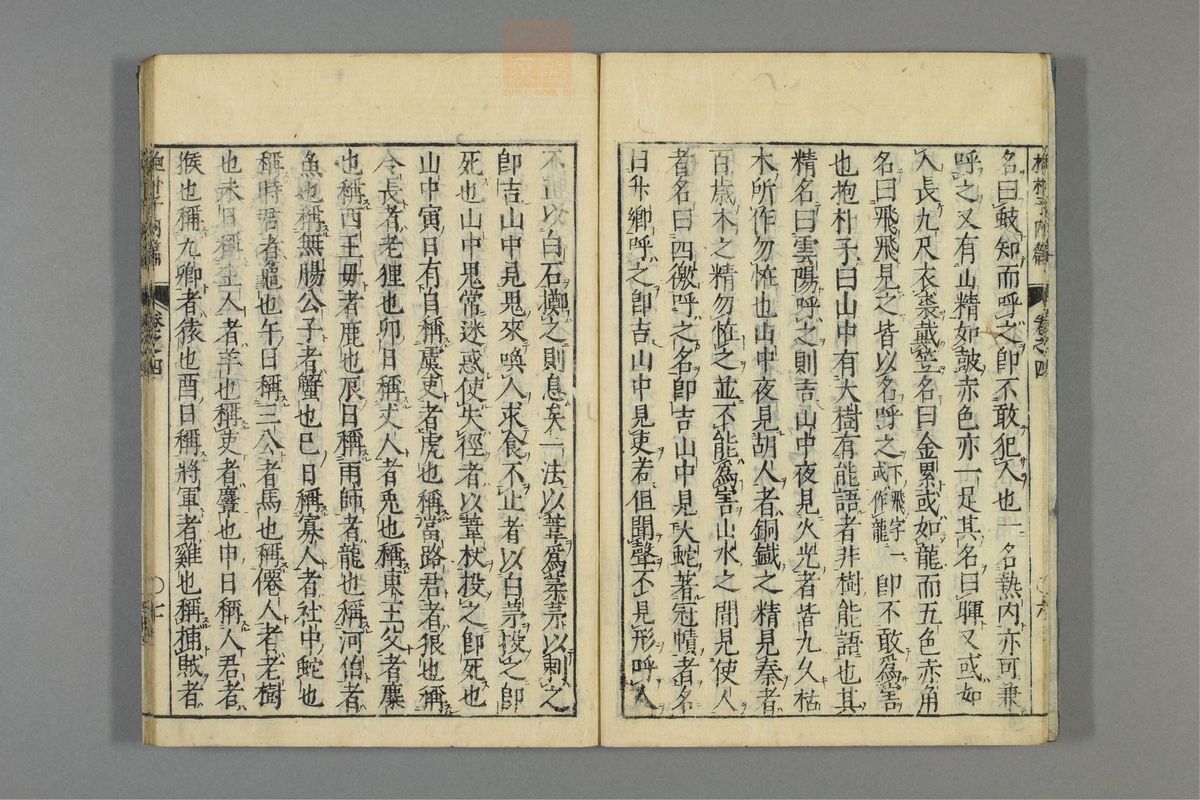 抱朴子内篇 卷之四 ○六
名曰蚑知而呼之即不敢犯人也一名熱内亦可兼
呼之又有山精如鼓赤色亦一足其名曰暉又或如
人長九尺衣裘戴笠名曰金累或如龍而五色赤角
名曰飛飛見之皆以名呼之下飛字一或作龍即不敢爲害
也抱朴子曰山中有大樹有能語者非樹能語也其
精名曰雲陽呼之則吉山中夜見火光者皆久枯
木所作勿恠也山中夜見胡人者銅鐵之精見秦者
百歳木之精勿恠之並不能爲害山水之間見使人
者名曰四徼呼之名即吉山中見大蛇著冠幘者名
曰升卿呼之即吉山中見吏若但聞聲不見形呼人
不止以白石擲之則息矣一法以葦爲茅以刺之
即吉山中見鬼來喚人求食不止者以白茅投之即
死也山中鬼常迷惑使失徑者以葦杖投之即死也
山中寅日有自稱虞吏者虎也稱當路君者狼也稱
令長者老狸也卯日稱丈人者兎也稱東王父者麋
也稱西王毋者鹿也辰日稱雨師者龍也稱河伯者
魚也稱無腸公子者蟹也巳日稱寡人者社中蛇也
稱時君者龜也午日稱三公者馬也稱僊人者老樹
也未日稱主人者羊也稱吏者麞也申日稱人君者
猴也稱九卿者猿也酉日稱將軍者雞也稱捕賊者
抱朴子内篇 卷之四 ○七